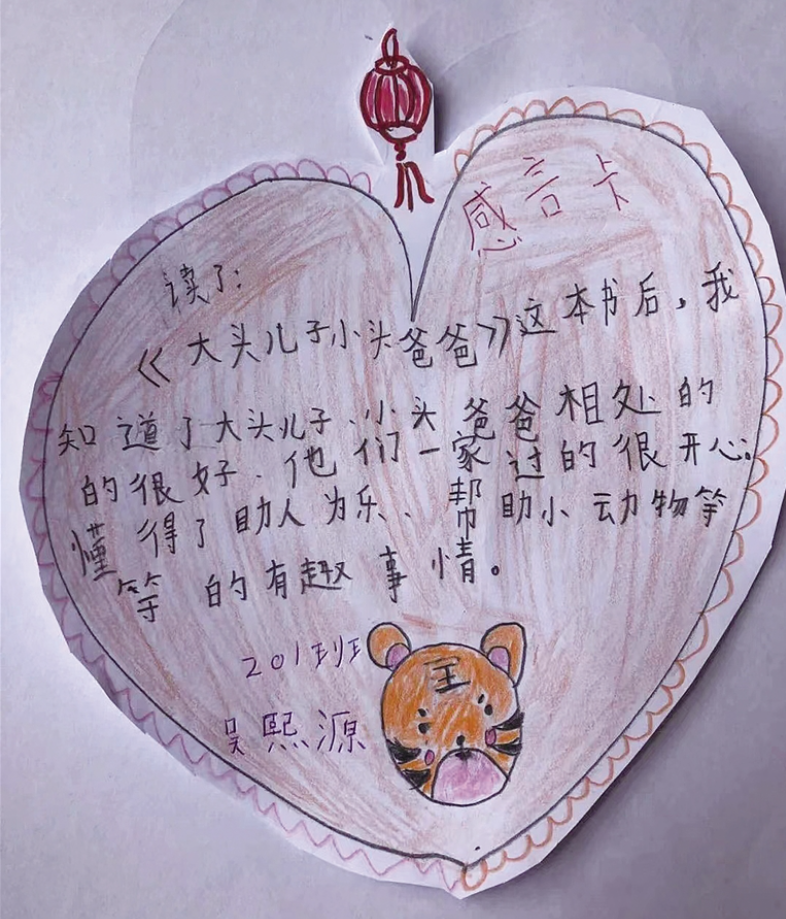 感言卡
读了:
《大头儿子小头爸爸》这本书后,我
知道了大头儿子、小头爸爸相处的
的很好.他们一家过的很开心。
懂得了助人为乐、帮助小动物等
等的有趣事情。
201班
吴熙源
王